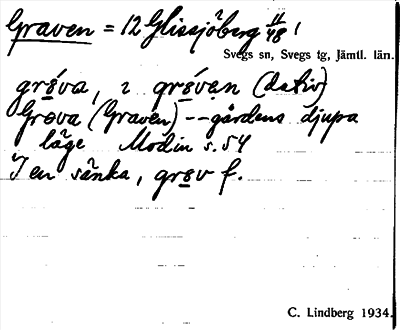 Graven = 12 Glissjöberg 11/48 1
Svegs sn, Svegs tg, Jämtl. län.
grǿva, ı grǿvən (dativ)
Grøva (Graven) -- gårdens djupa
läge Modin s. 54
I en sänka, grøv f.
C. Lindberg 1934.